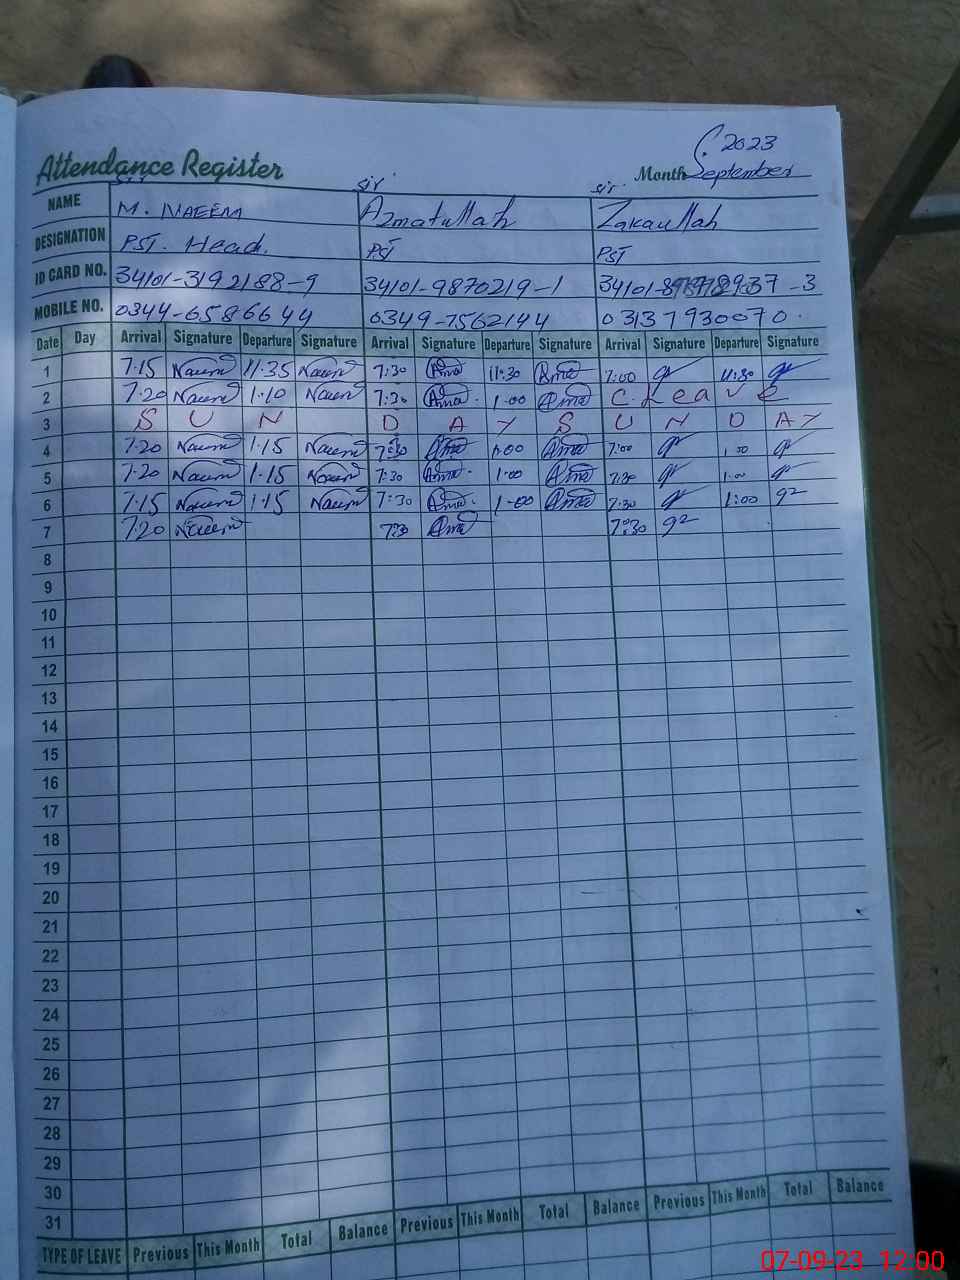 2023
Attendance Register
Month September
sir sir sir
NAME M. NAEEM Azmatullah Zakaullah
DESIGNATION PST. Head. PST PST
ID CARD NO. 34101-3192188-9 34101-9870219-1 34101- 937-3
MOBILE NO. 0344-6586644 0349-7562144 03137930070.
Date Day Arrival Signature Departure Signature Arrival Signature Departure Signature Arrival Signature Departure Signature
1 7.15 Naeem 11.35 Naeem 7:30 Ama 11:30 Ama 7:00 11:30
2 7.20 Naeem 1.10 Naeem 7:20 Ama 1.00 Ama C. Leave
3 S U N D A Y S U N D A Y
4 7.20 Naeem 1.15 Naeem 7:30 Ama 1:00 Ama 7:00 1:00
5 7.20 Naeem 1.15 Naeem 7:30 Ama 1:00 Ama 7:30 1:00
6 7.15 Naeem 1.15 Naeem 7:30 Ama 1-00 Ama 7:30 1:00
7 7.20 Naeem 7:30 Ama 7:30
8
9
10
11
12
13
14
15
16
17
18
19
20
21
22
23
24
25
26
27
28
29
30
31
TYPE OF LEAVE Previous This Month Total Balance Previous This Month Total Balance Previous This Month Total Balance
07-09-23 12:00